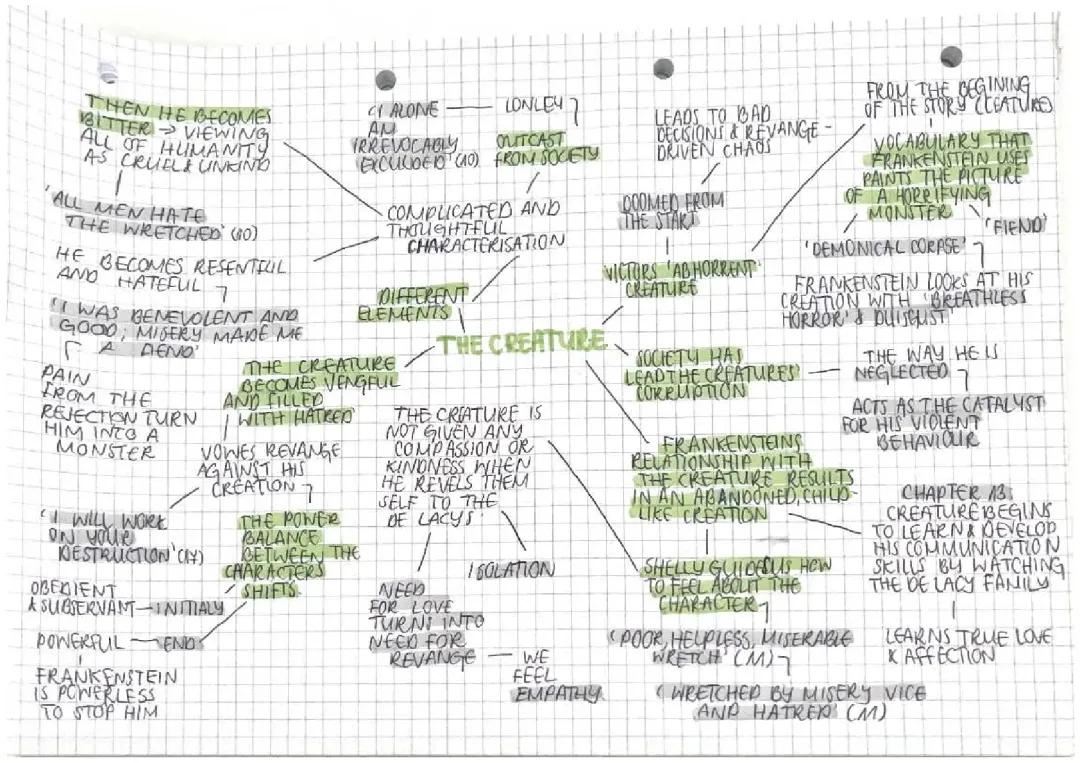 THEN HE BECOMES
BITTER → VIEWING
ALL OF HUMANITY
AS CRUEL & UNKIND
'ALL MEN HATE
THE WRETCHED' (10)
HE BECOMES RESENTFUL
AND HATEFUL
'I WAS BENEVOLENT AND
GOOD; MISERY MADE ME
A FIEND'
PAIN
FROM THE
REJECTION TURN
HIM INTO A
MONSTER
'I ALONE
AN
IRREVOCABLY
EXCLUDED' (10)
LONLEY
OUTCAST
FROM SOCIETY
COMPLICATED AND
THOUGHTFUL
CHARACTERISATION
DIFFERENT
ELEMENTS
THE CREATURE
THE CREATURE
BECOMES VENGFUL
AND FILLED
WITH HATRED
VOWES REVANGE
AGAINST HIS
CREATION
'I WILL WORK
ON YOUR
DESTRUCTION' (17)
THE POWER
BALANCE
BETWEEN THE
CHARACTERS
SHIFTS
OBEDIENT
& SUBSERVANT — INITIALY
POWERFUL — END
FRANKENSTEIN
IS POWERLESS
TO STOP HIM
THE CREATURE IS
NOT GIVEN ANY
COMPASSION OR
KINDNESS WHEN
HE REVELS THEM
SELF TO THE
DE LACYS'
ISOLATION
NEED
FOR LOVE
TURNS INTO
NEED FOR
REVANGE — WE
FEEL
EMPATHY
LEADS TO BAD
DECISIONS & REVANGE -
DRIVEN CHAOS
DOOMED FROM
THE START
VICTORS 'ABHORRENT'
CREATURE
FROM THE BEGINING
OF THE STORY (CEATURE)
VOCABULARY THAT
FRANKENSTEIN USES
PAINTS THE PICTURE
OF A HORRIFYING
MONSTER
'FIEND'
'DEMONICAL CORPSE'
FRANKENSTEIN LOOKS AT HIS
CREATION WITH 'BREATHLESS
HORROR' & DUISGUST'
SOCIETY HAS
LEAD THE CREATURES'
CORRUPTION
THE WAY HE IS
NEGLECTED
ACTS AS THE CATALYST
FOR HIS VIOLENT
BEHAVIOUR
FRANKENSTEINS
RELATIONSHIP WITH
THE CREATURE RESULTS
IN AN ABANDONED, CHILD-
LIKE CREATION
CHAPTER 13:
CREATURE BEGINS
TO LEARN & DEVELOP
HIS COMMUNICATION
SKILLS BY WATCHING
THE DE LACY FAMILY
LEARNS TRUE LOVE
& AFFECTION
SHELLY GUIDES US HOW
TO FEEL ABOUT THE
CHARACTER
'POOR, HELPLESS, MISERABLE
WRETCH' (M)
'WRETCHED BY MISERY VICE
AND HATRED' (M)